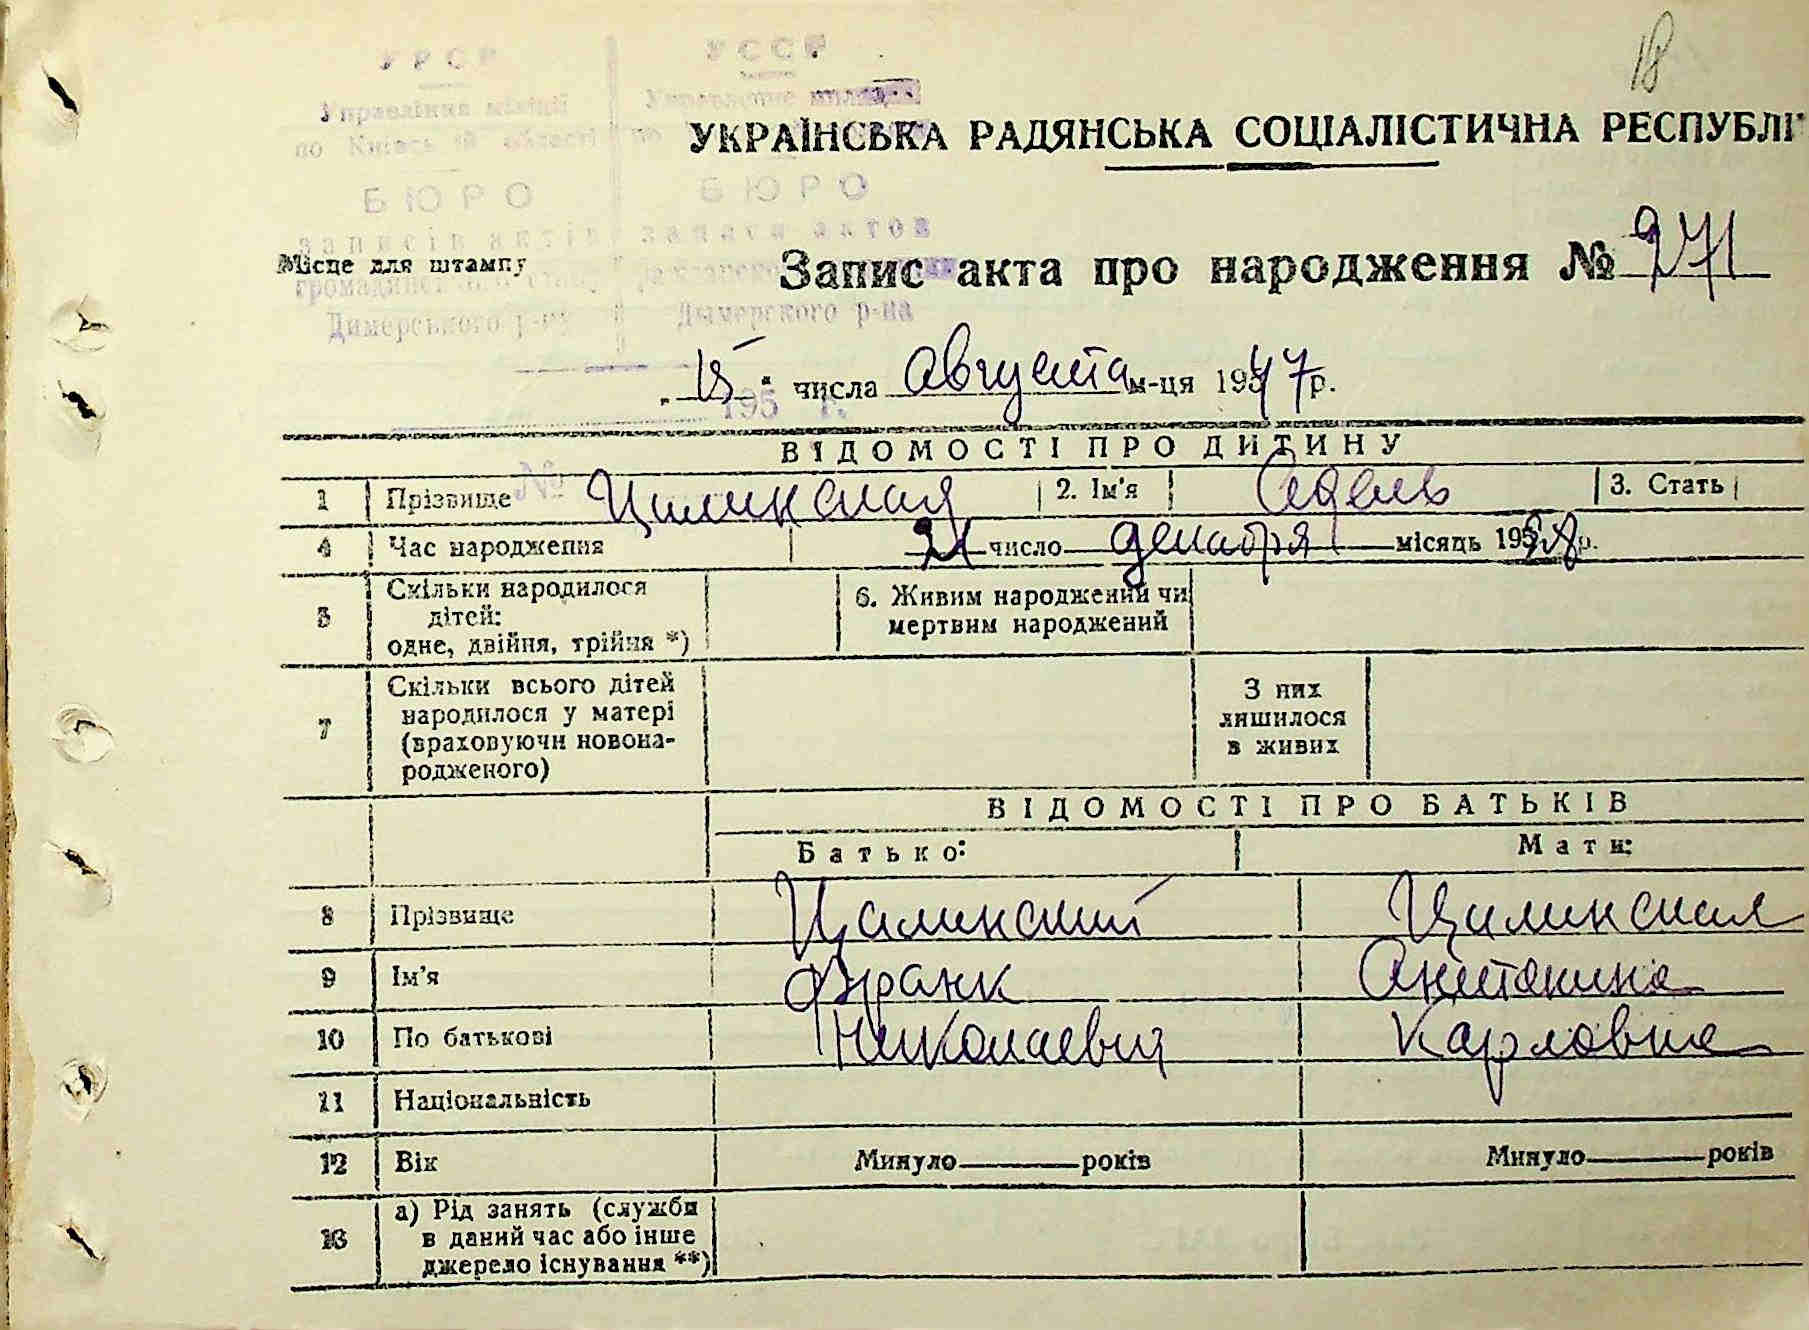 18
УРСР
УССР
Управління міліції
Управление милиции
по Київській області
по
УКРАЇНСЬКА РАДЯНСЬКА СОЦІАЛІСТИЧНА РЕСПУБЛІ
БЮРО
БЮРО
записів актів
записи актов
Місце для штампу
Запис акта про народження № 271
громадянського стану
гражданского
Димерського р-ну
Дымерского р-на
"15" числа Августа м-ця 1947 р.
195 г.
ВІДОМОСТІ ПРО ДИТИНУ
№
1 Прізвище Цилинская 2. Ім'я Адель 3. Стать
4 Час народження 21 число декабря місяць 19 р.
5 Скільки народилося дітей: одне, двійня, трійня *) 6. Живим народжений чи мертвим народжений
7 Скільки всього дітей народилося у матері (враховуючи новонародженого) З них лишилося в живих
ВІДОМОСТІ ПРО БАТЬКІВ
Батько: Мати:
8 Прізвище Цилинский Цилинская
9 Ім'я Франк
10 По батькові Николаевич Карловна
11 Національність
12 Вік Минуло років Минуло років
13 а) Рід занять (служби в даний час або інше джерело існування **)